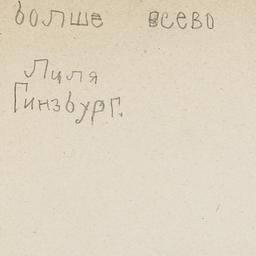 болше всево
Лиля
Гинзбург.